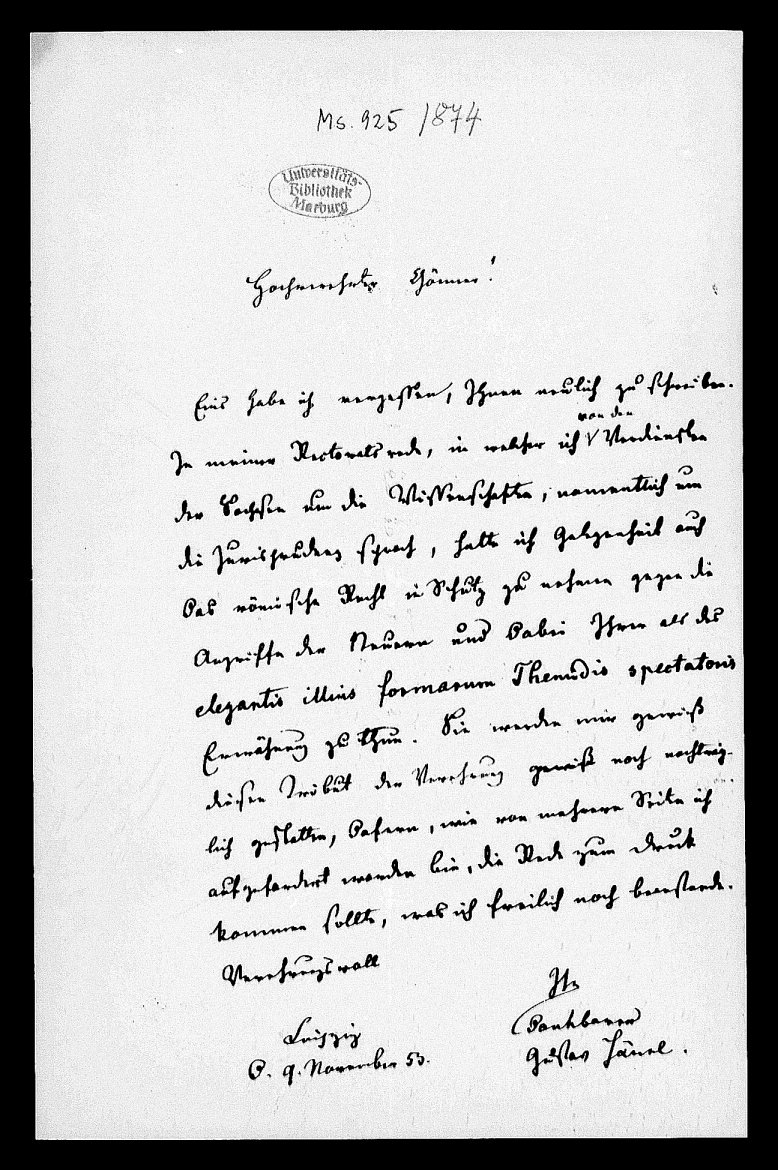 Ms. 925 /874
Universitäts-
Bibliothek
Marburg
Hochverehrter Gönner!
Eins habe ich vergessen, Ihnen neulich zu schreiben.
von den
In meiner Rectoratsrede, in welcher ich Verdiensten
der Sachsen um die Wissenschaften, namentlich um
die Jurisprudenz sprach, hatte ich Gelegenheit auch
das römische Recht in Schutz zu nehmen gegen die
Angriffe der Neuern und dabei Ihrer als des
elegantis illius formarum Themidis spectatoris
Erwähnung zu thun. Sie werden mir gewiß
diesen Tribut der Verehrung gewiß noch nachträg-
lich gestatten, dafern, wie von mehrern Seiten ich
aufgefordert worden bin, die Rede zum Druck
kommen sollte, was ich freilich noch beanstande.
Verehrungsvoll
Ihr
Leipzig
dankbarer
d. 9. November 53.
Gustav Hänel.